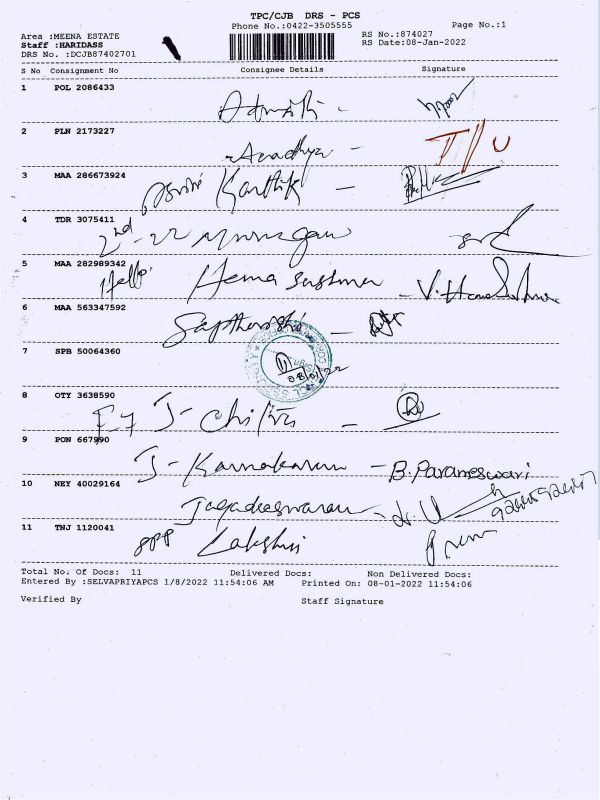 TPC/CJB DRS - PCS
Phone No.:0422-3505555
Page No.:1
Area :MEENA ESTATE
Staff :HARIDASS
DRS No. :DCJB87402701
RS No.:874027
RS Date:08-Jan-2022
S No Consignment No Consignee Details Signature
1 POL 2086433
2 PLN 2173227
Aradhya -
3 MAA 286673924
Karthik -
4 TDR 3075411
2nd -22 Murugan
5 MAA 282989342
Hello. Hema Sushma -
6 MAA 563347592
-
7 SPB 50064360
8 OTY 3638590
F7 J- Chitra -
9 PON 667990
J- Karunakaran - B. Parameswari
10 NEY 40029164
Jagadeeswaran -
11 TNJ 1120041
Lakshmi
Total No. Of Docs: 11 Delivered Docs: Non Delivered Docs:
Entered By :SELVAPRIYAPCS 1/8/2022 11:54:06 AM Printed On: 08-01-2022 11:54:06
Verified By Staff Signature